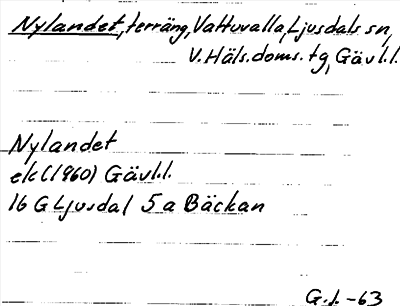 Nylandet, terräng, Vattuvalla, Ljusdals sn,
V. Häls. doms. tg, Gävl.l.
Nylandet
ek (1960) Gävl.l.
16 G Ljusdal 5 a Bäckan
G.J. -63